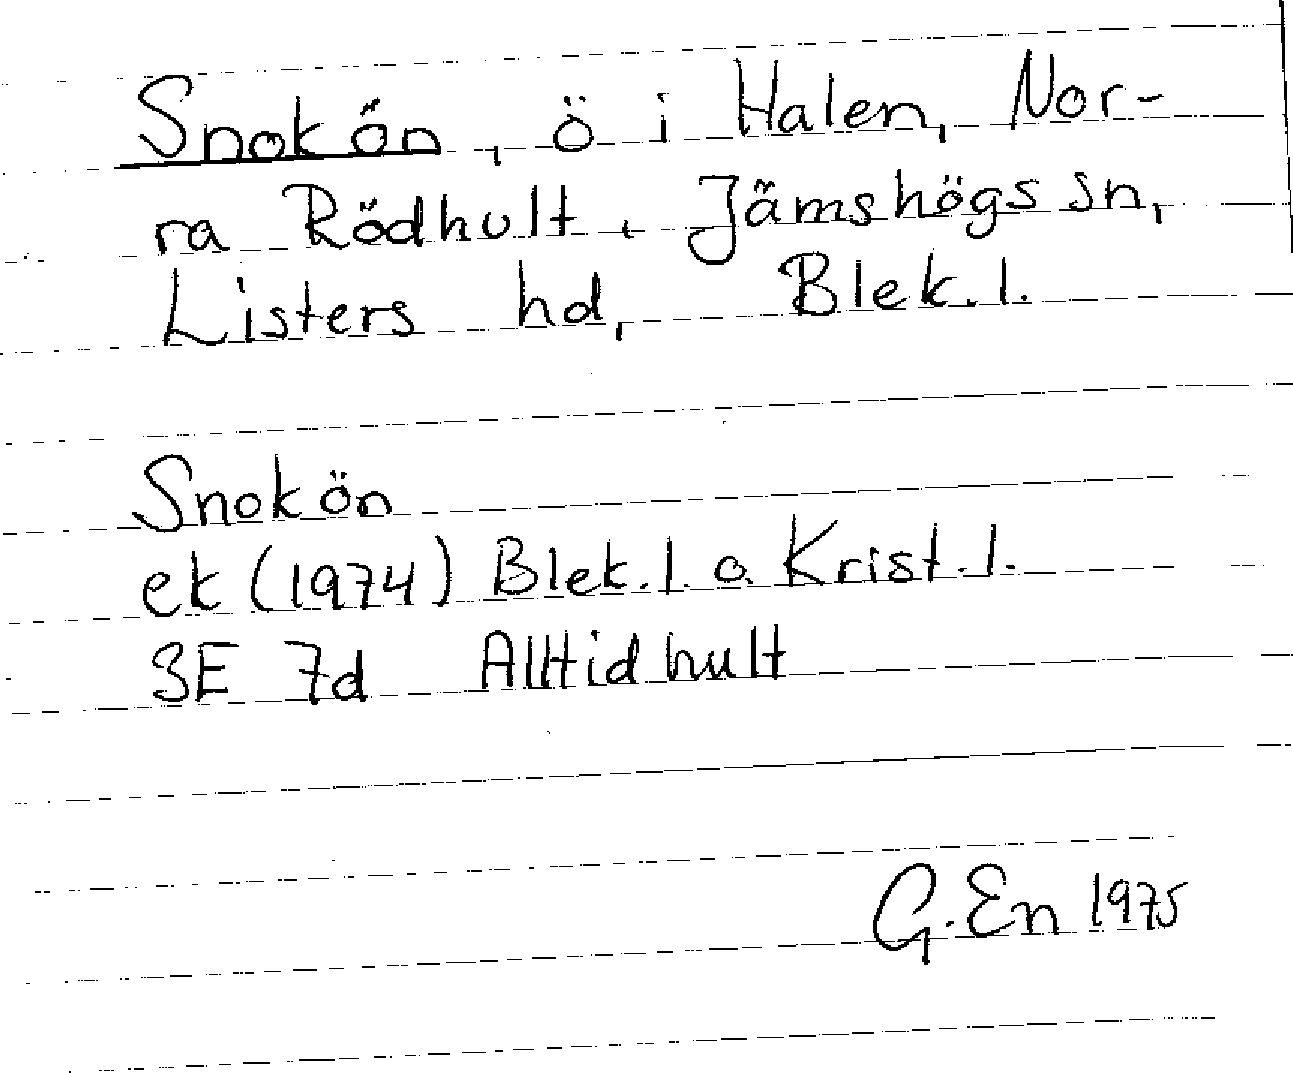 Snokön, ö i Halen, Nor-
ra Rödhult, Jämshögs sn,
Listers hd, Blek. l.
Snokön
ek (1974) Blek. l. o. Krist. l.
3E 7d Alltidhult
G. En 1975